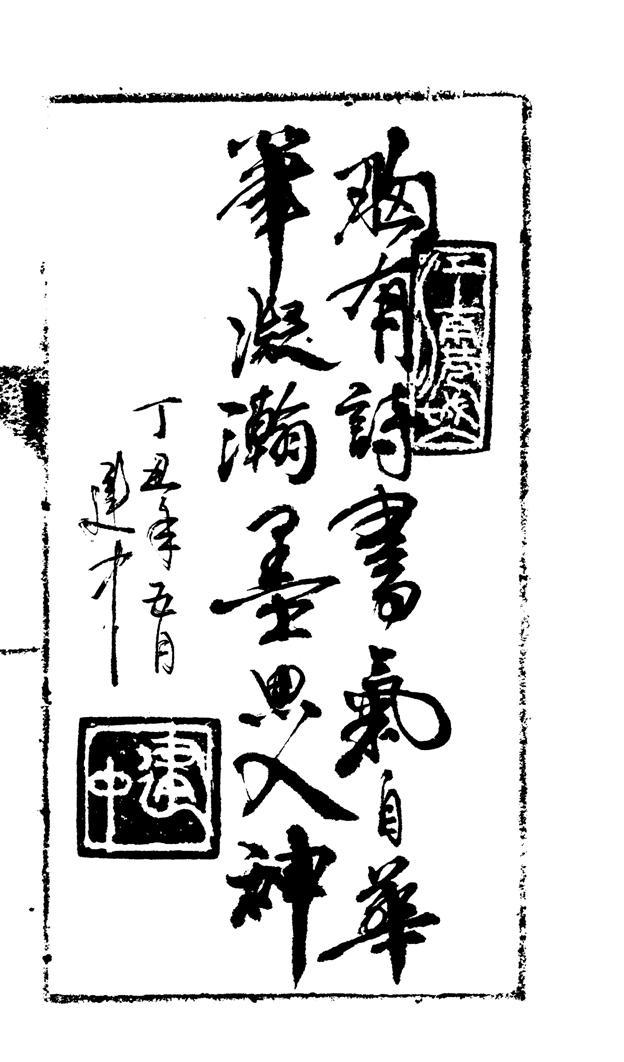 胸有詩書氣自華
筆凝瀚墨思入神
丁丑年五月
建中
建中